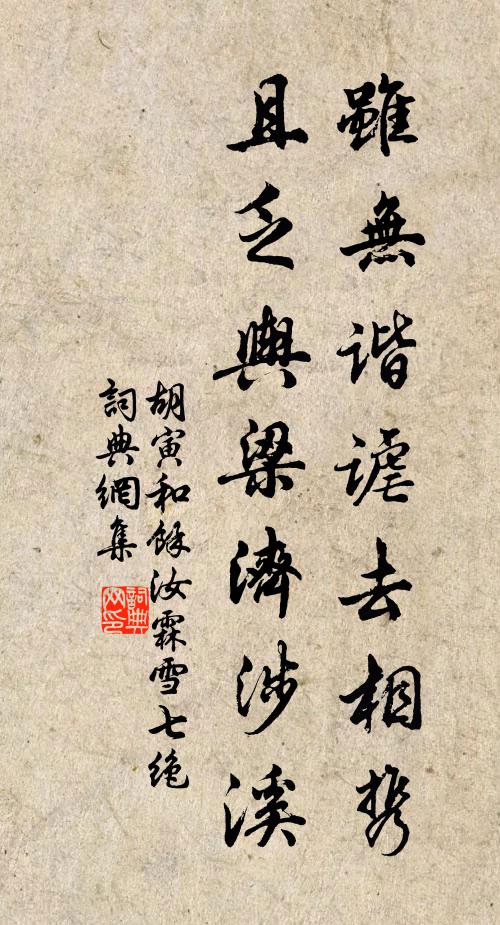 雖無谐謔去相携
且乏輿梁濟涉溪
胡寅和餘汝霖雪七絶
詞典網集
詞典
网印